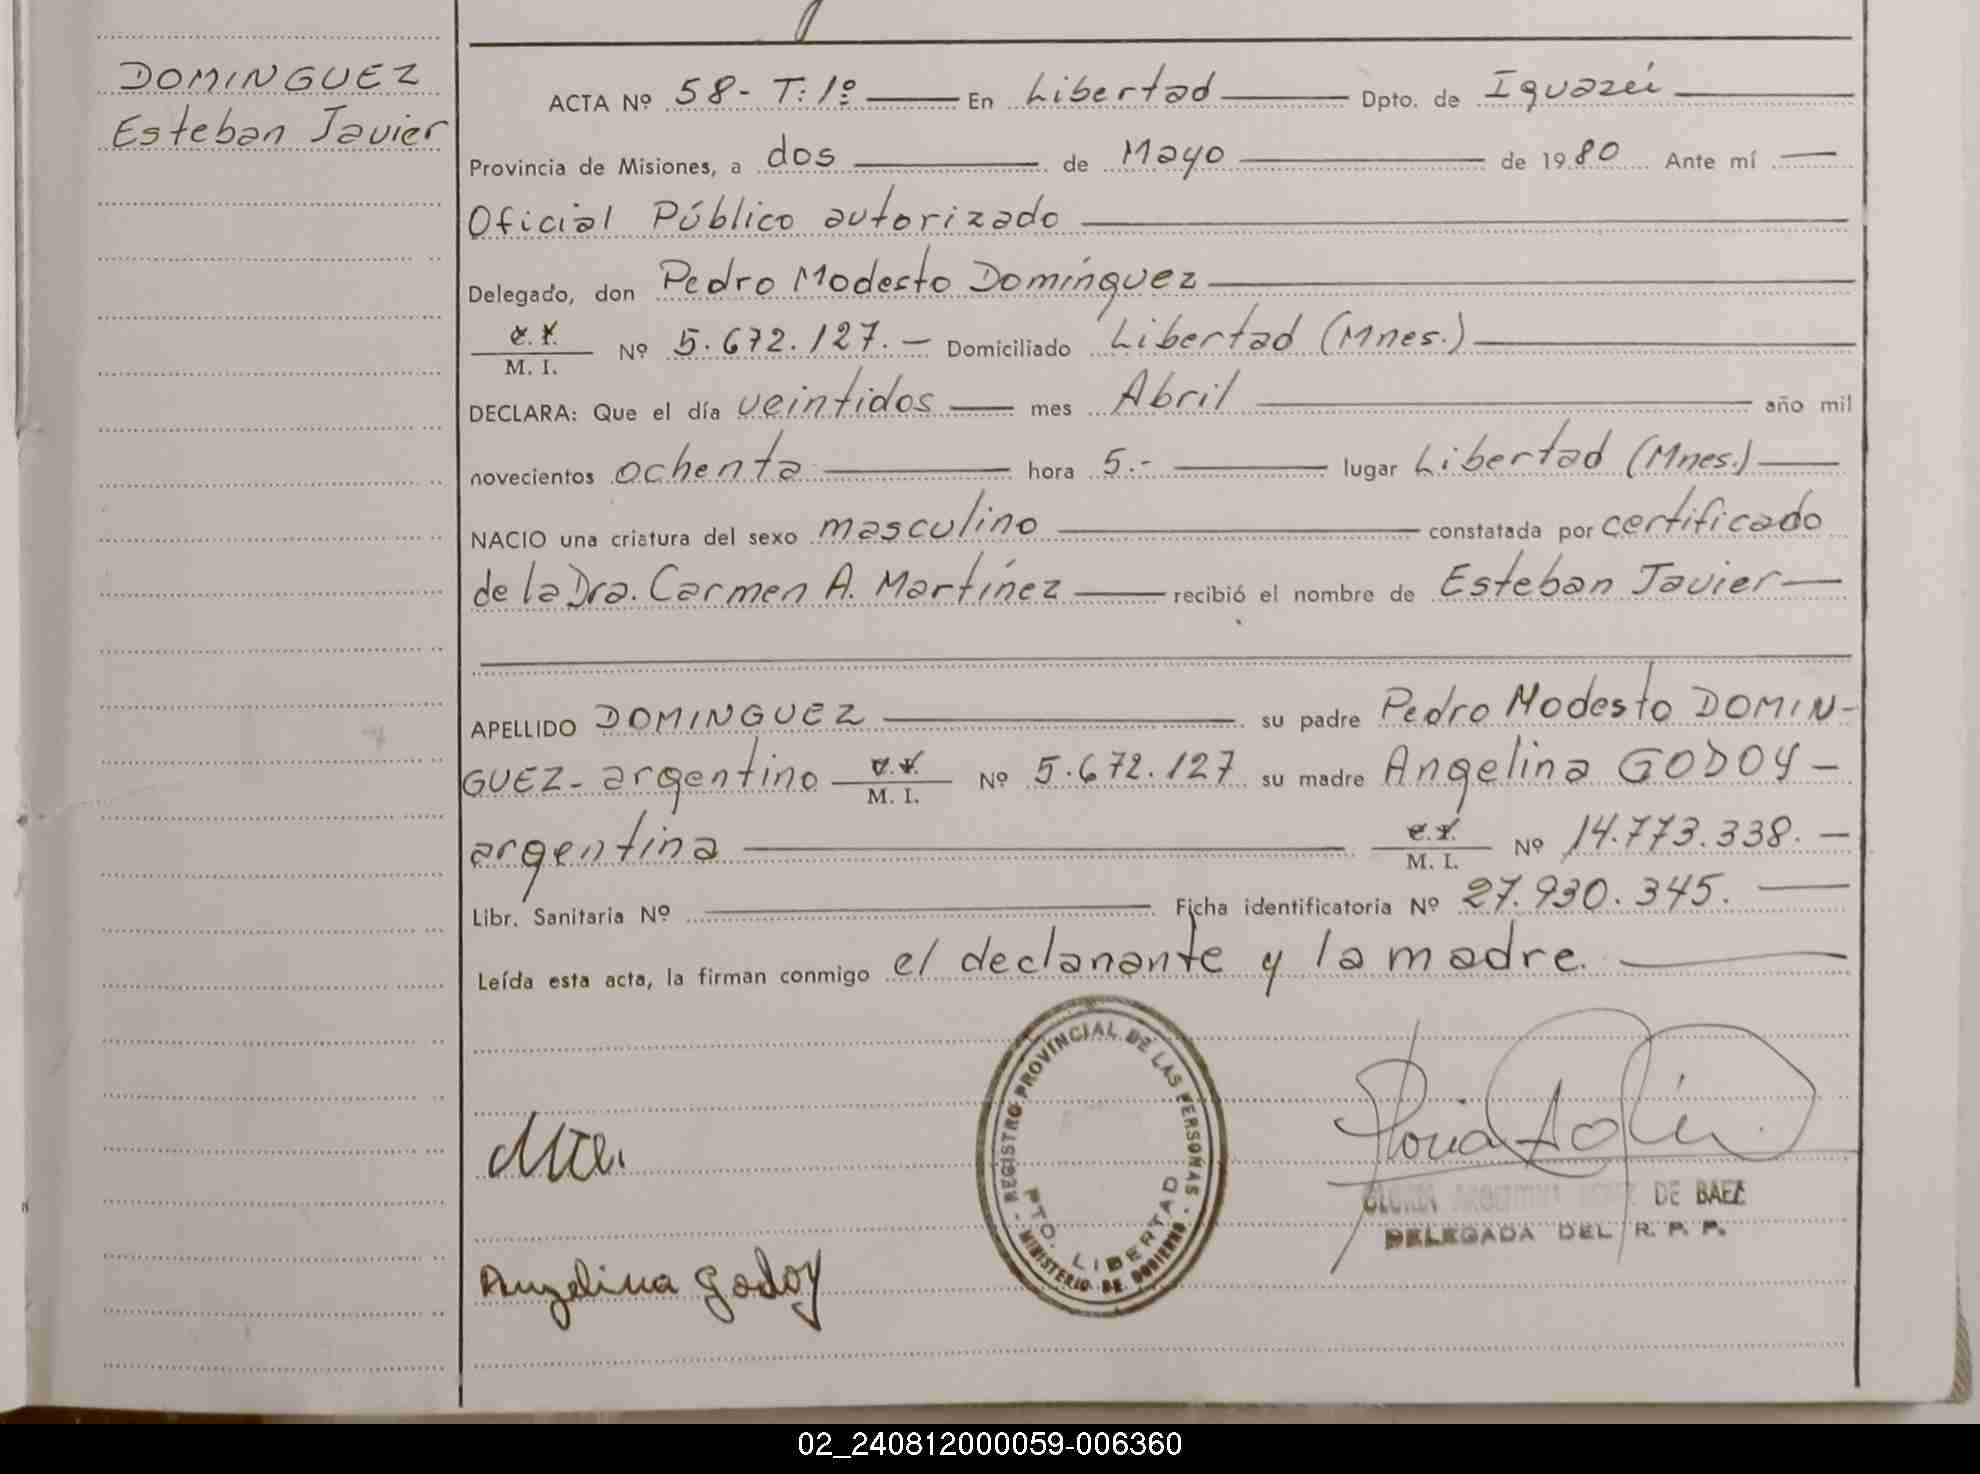 DOMINGUEZ
Esteban Javier
ACTA Nº 58- T: 1º En Libertad Dpto. de Iguazú
Provincia de Misiones, a dos de Mayo de 1980 Ante mí
Oficial Público autorizado
Delegado, don Pedro Modesto Domínguez
M. I. Nº 5.672.127.- Domiciliado Libertad (Mnes.)
DECLARA: Que el día veintidos mes Abril año mil
novecientos ochenta hora 5.- lugar Libertad (Mnes.)
NACIO una criatura del sexo masculino constatada por certificado
de la Dra. Carmen A. Martínez recibió el nombre de Esteban Javier
APELLIDO DOMINGUEZ su padre Pedro Modesto DOMIN-
GUEZ- argentino M. I. Nº 5.672.127 su madre Angelina GODOY -
argentina M. I. Nº 14.773.338.-
Libr. Sanitaria Nº Ficha identificatoria Nº 27.930.345.
Leída esta acta, la firman conmigo el declanante y la madre.
- REGISTRO PROVINCIAL DE LAS PERSONAS -
PTO. LIBERTAD
MINISTERIO DE GOBIERNO
DE BAEZ
DELEGADA DEL R. P. P.
Angelina Godoy
02_240812000059-006360